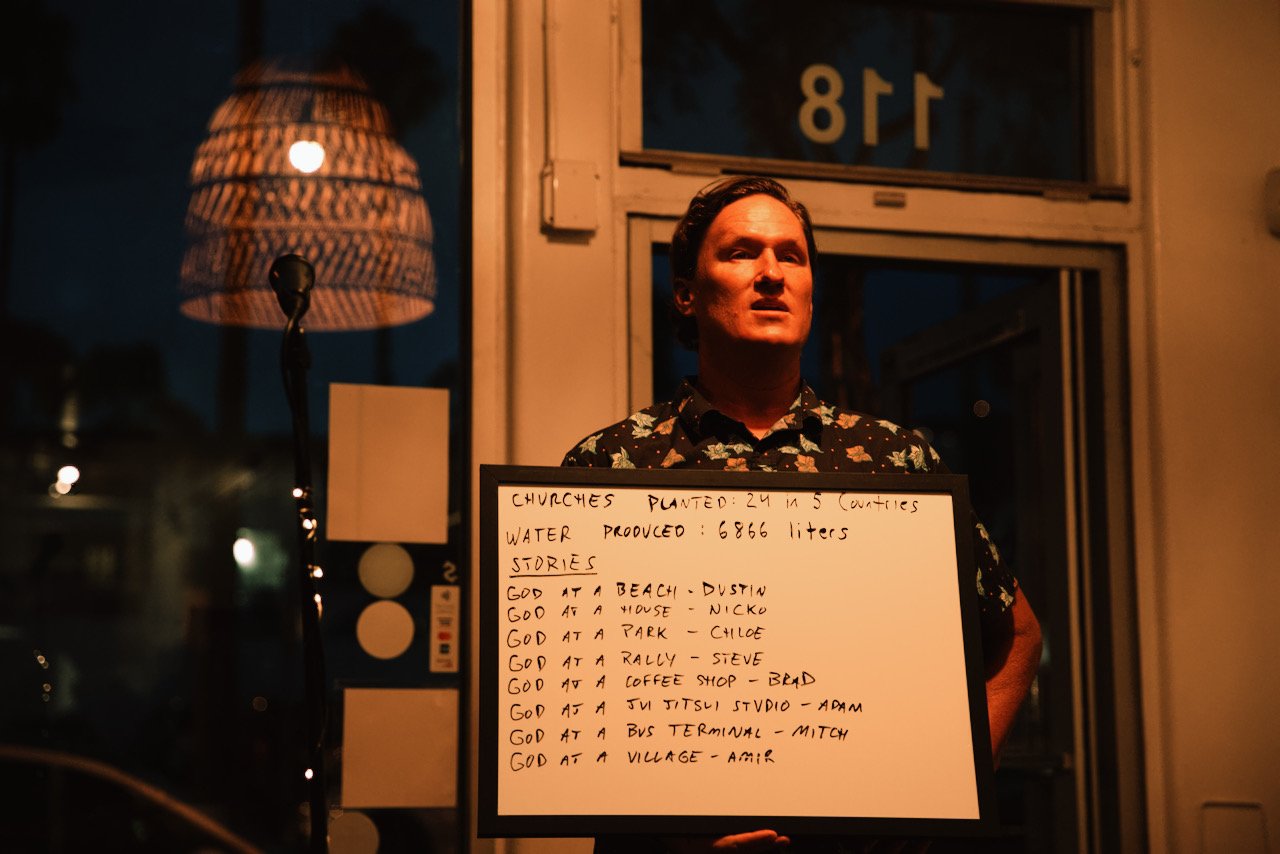 118
CHURCHES PLANTED: 24 in 5 Countries
WATER PRODUCED : 6866 liters
STORIES
GOD AT A BEACH - DUSTIN
GOD AT A HOUSE - NICKO
GOD AT A PARK - CHLOE
GOD AT A RALLY - STEVE
GOD AT A COFFEE SHOP - BRAD
GOD AT A JUI JITSUI STUDIO - ADAM
GOD AT A BUS TERMINAL - MITCH
GOD AT A VILLAGE - AMIR